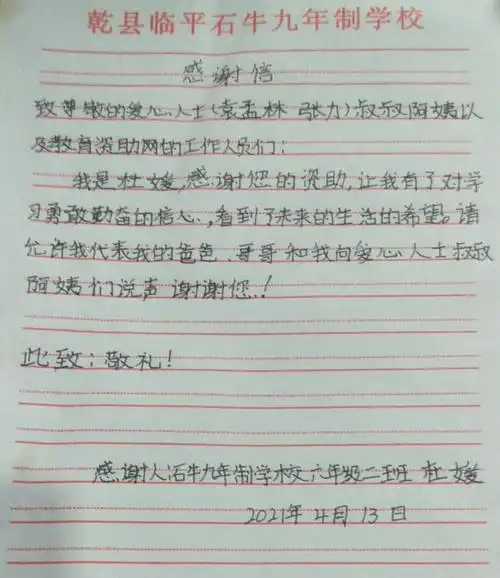 乾县临平石牛九年制学校
感谢信
致尊敬的爱心人士(袁孟林 张力)叔叔阿姨以
及教育资助网的工作人员们:
我是杜媛,感谢您的资助,让我有了对学
习勇敢勤奋的信心,看到了未来的生活的希望。请
允许我代表我的爸爸、哥哥和我向爱心人士叔叔
阿姨们说声 谢谢您!
此致:敬礼!
感谢人石牛九年制学校六年级二班 杜媛
2021年4月13日